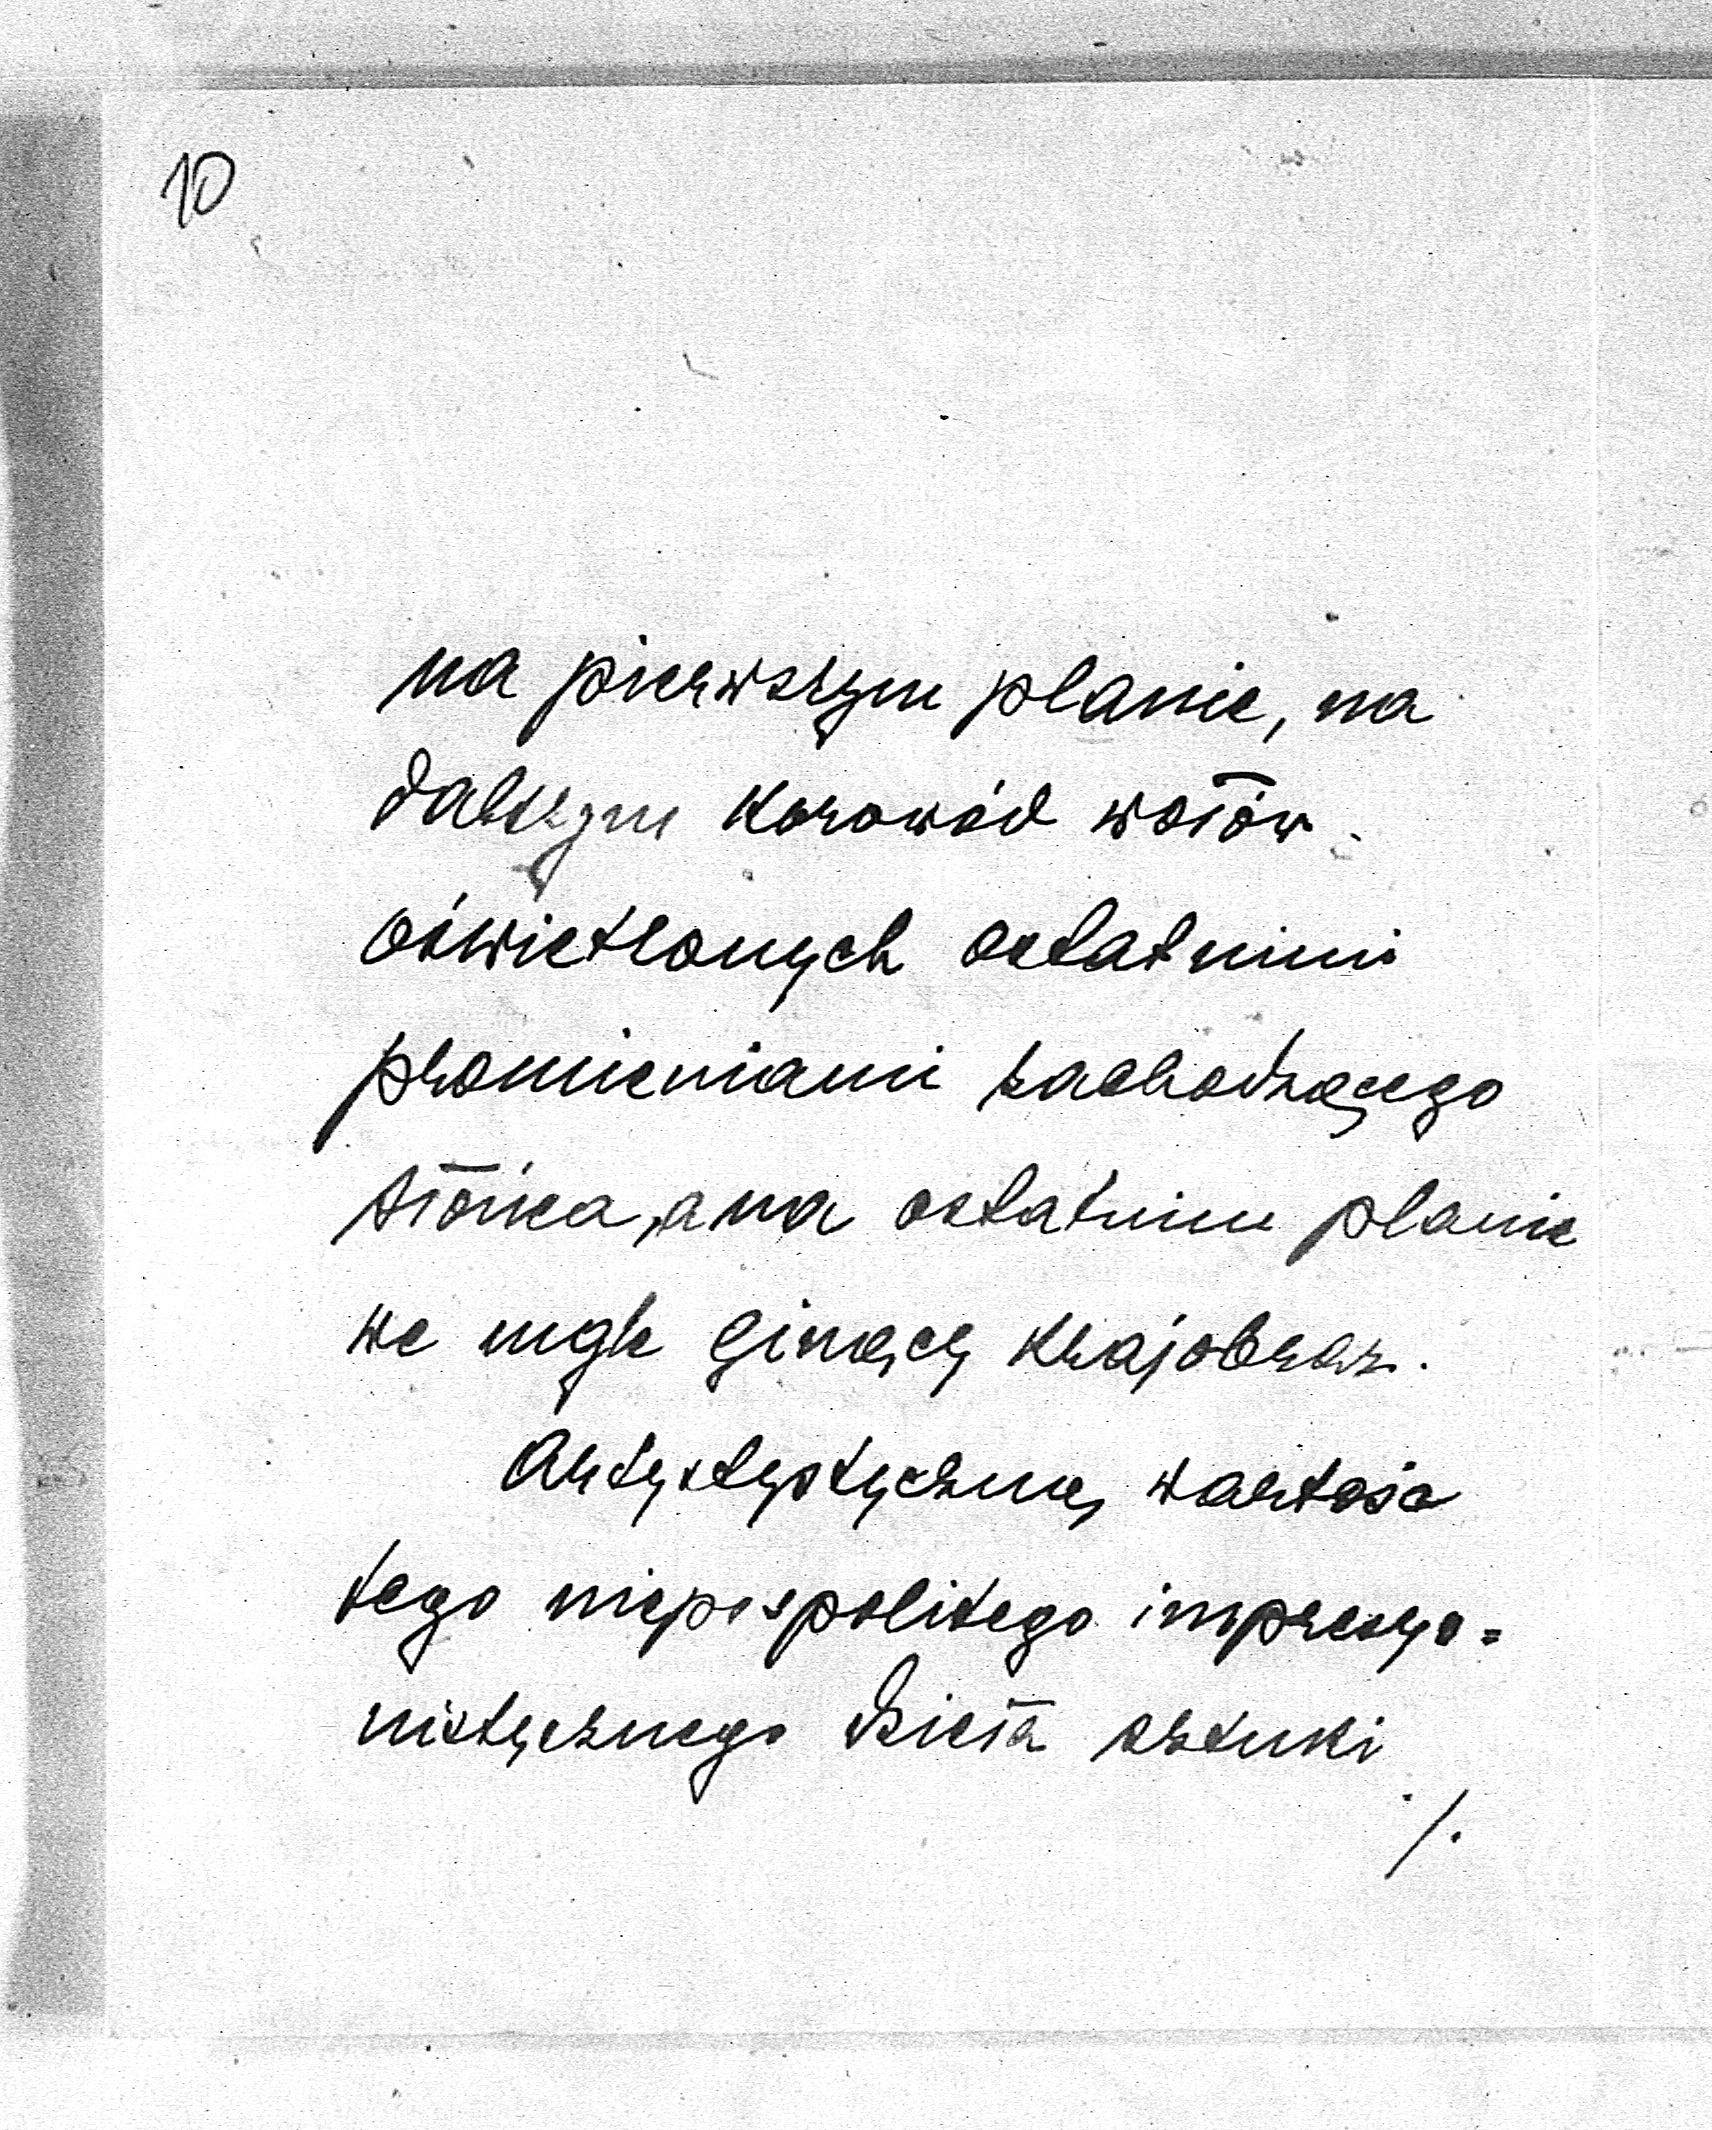 10
na pierwszym planie, na
dalszym korowód wołów
oświetlonych ostatnimi
promieniami zachodzącego
słońca, a na ostatnim planie
we mgle ginący krajobraz.
Artystystyczną wartość
tego niepospolitego impresyo=
nistycznego dzieła sztuki
./.